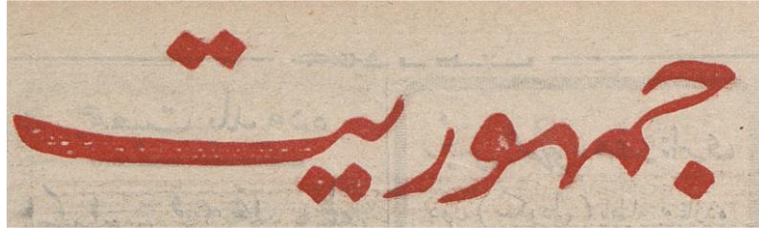 جمهوريت